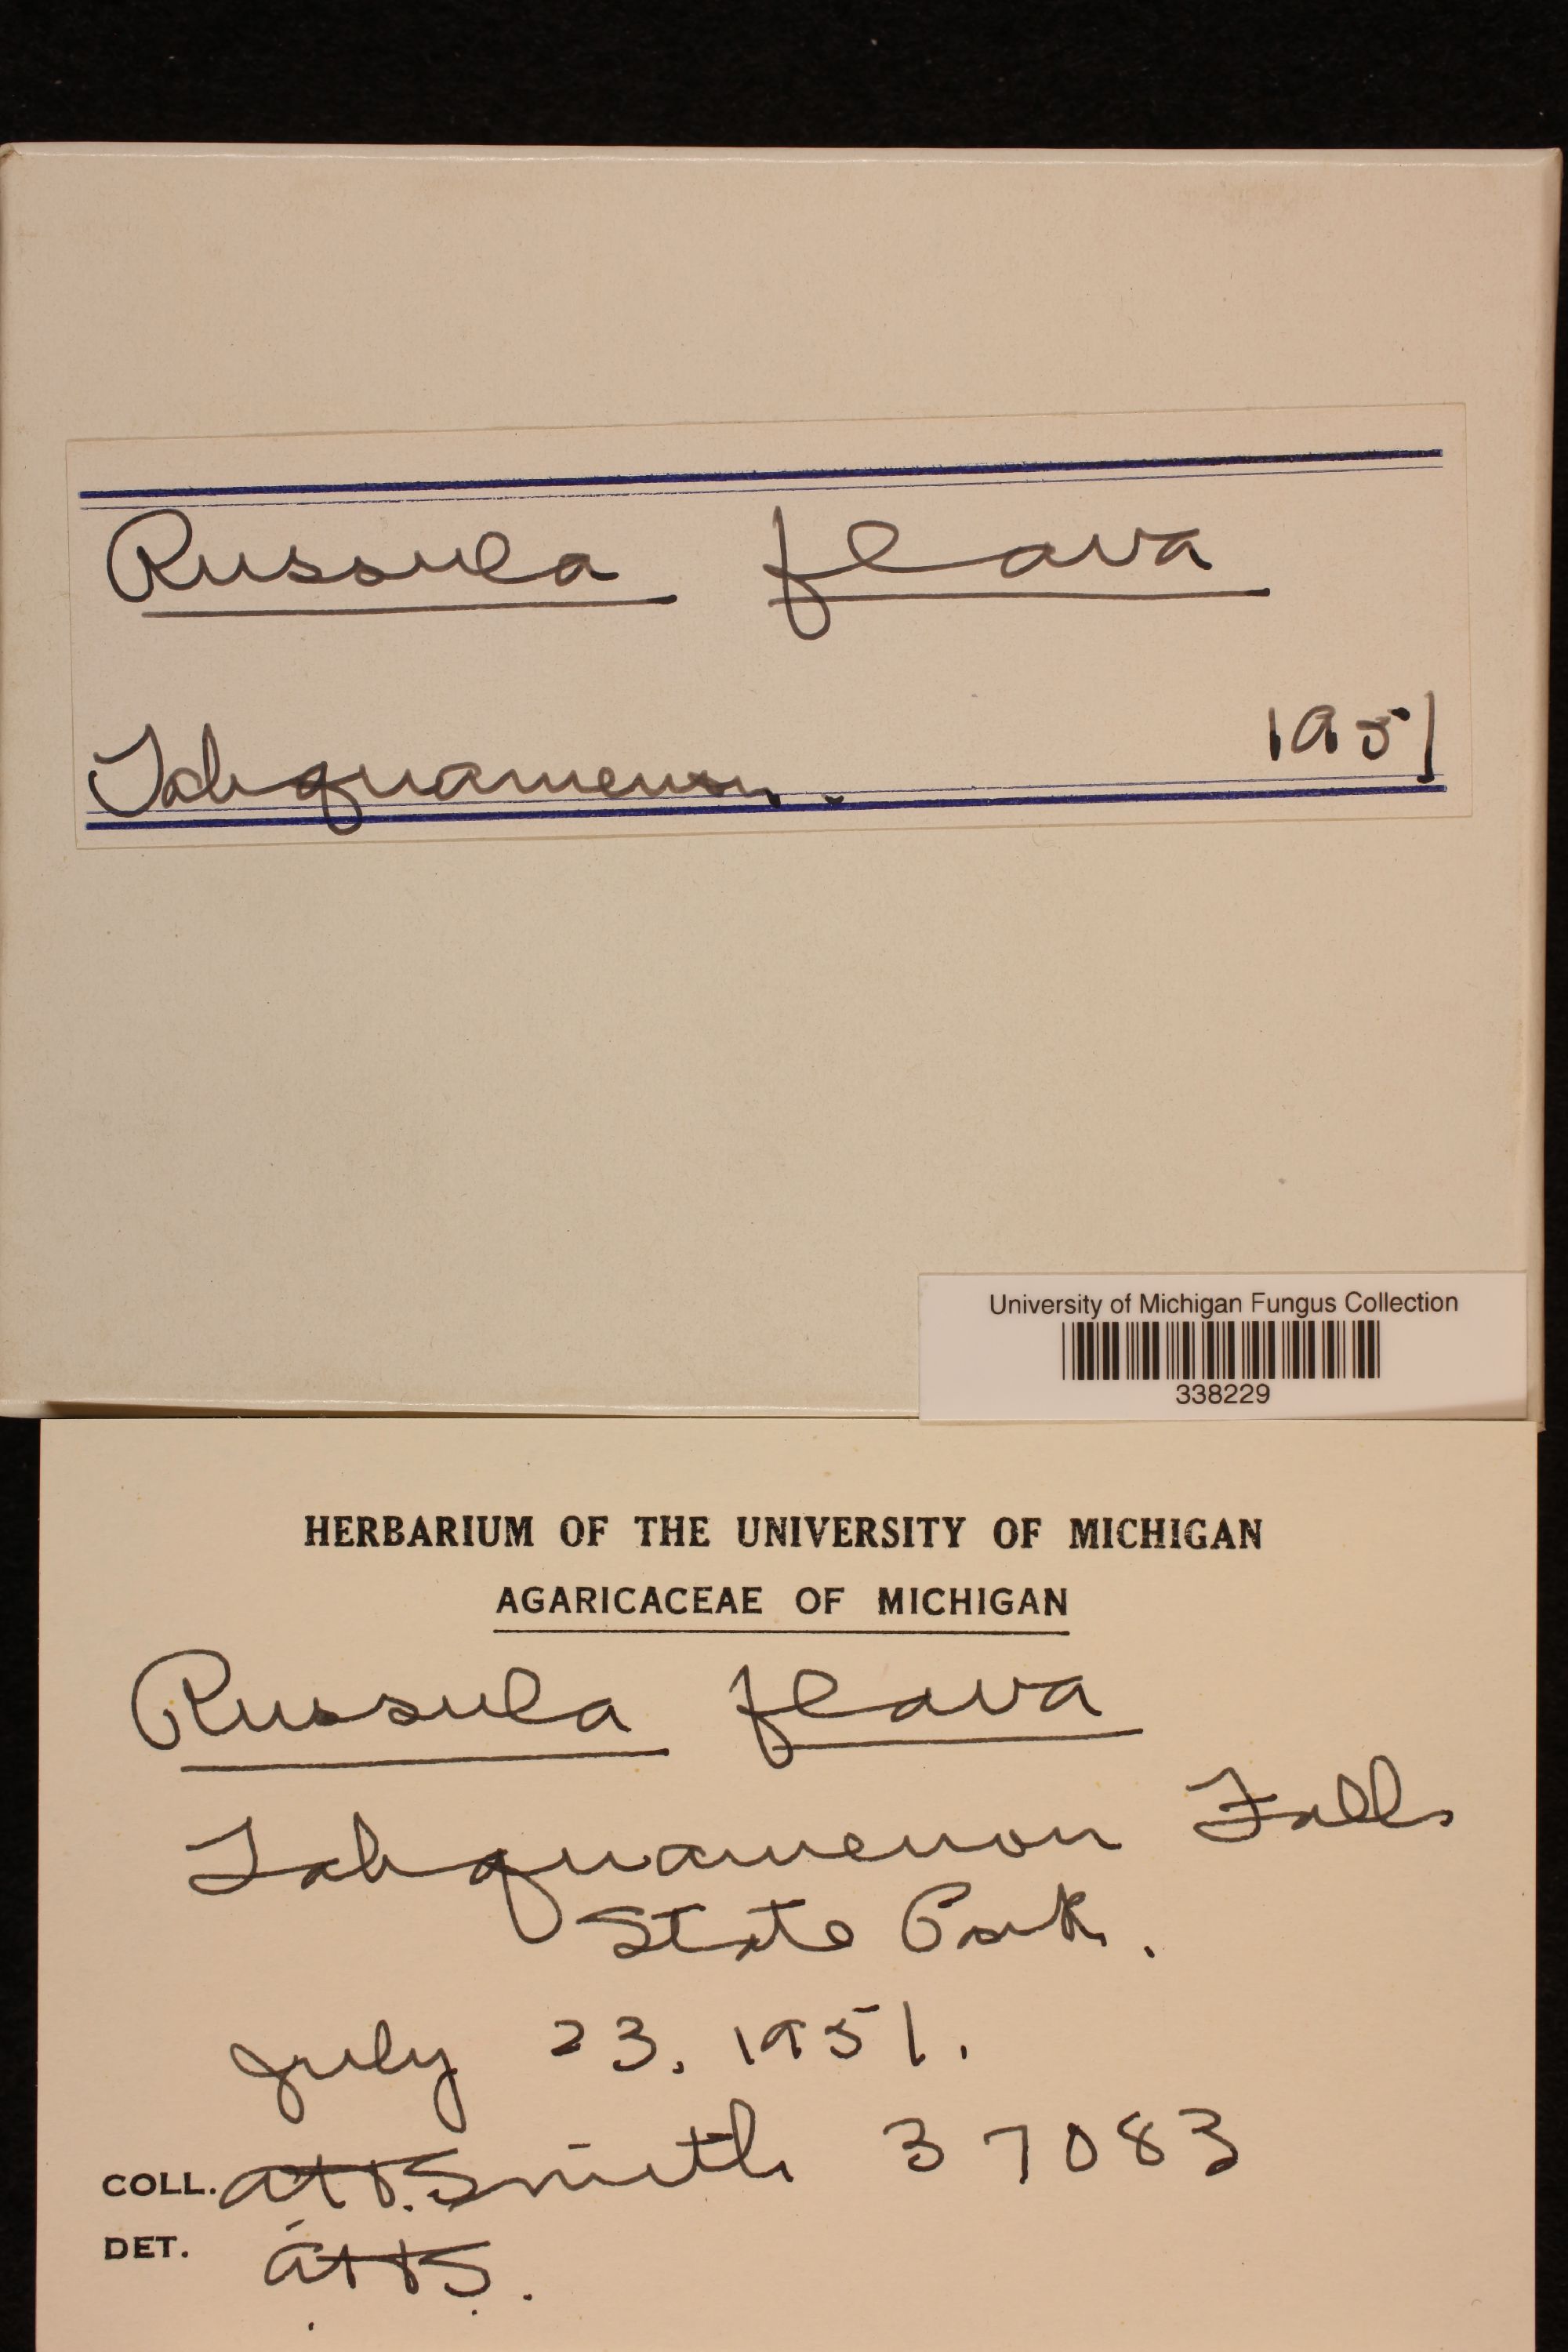 Russula flava
Tahquamenon.
1951
University of Michigan Fungus Collection
338229
HERBARIUM OF THE UNIVERSITY OF MICHIGAN
AGARICACEAE OF MICHIGAN
Russula flava
Tahquamenon Falls
State Park.
July 23, 1951.
COLL. AH.Smith 37083
DET. AHS.